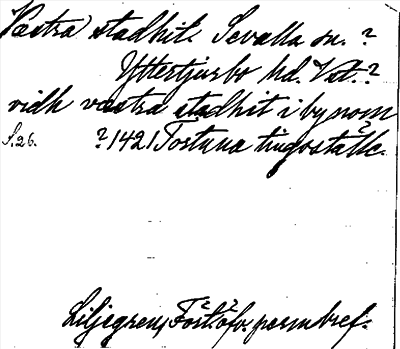 Västra stadhit. Sevalla sn. ?
Yttertjurbo hd. Vstm. ?
vidh væstra stadhit i bynom
S. 26. ? 1421 Tortuna tingsställe.
Liljegren, Fört. öfv. permbref.